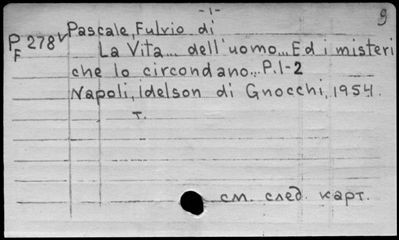 -1-
9
P 278v Pascale, Fulvio di
F
La Vita... dell'uomo... Ed i misteri
che lo circondano... P.1-2
Napoli, Idelson di Gnocchi, 1954.
т.
см. след. карт.